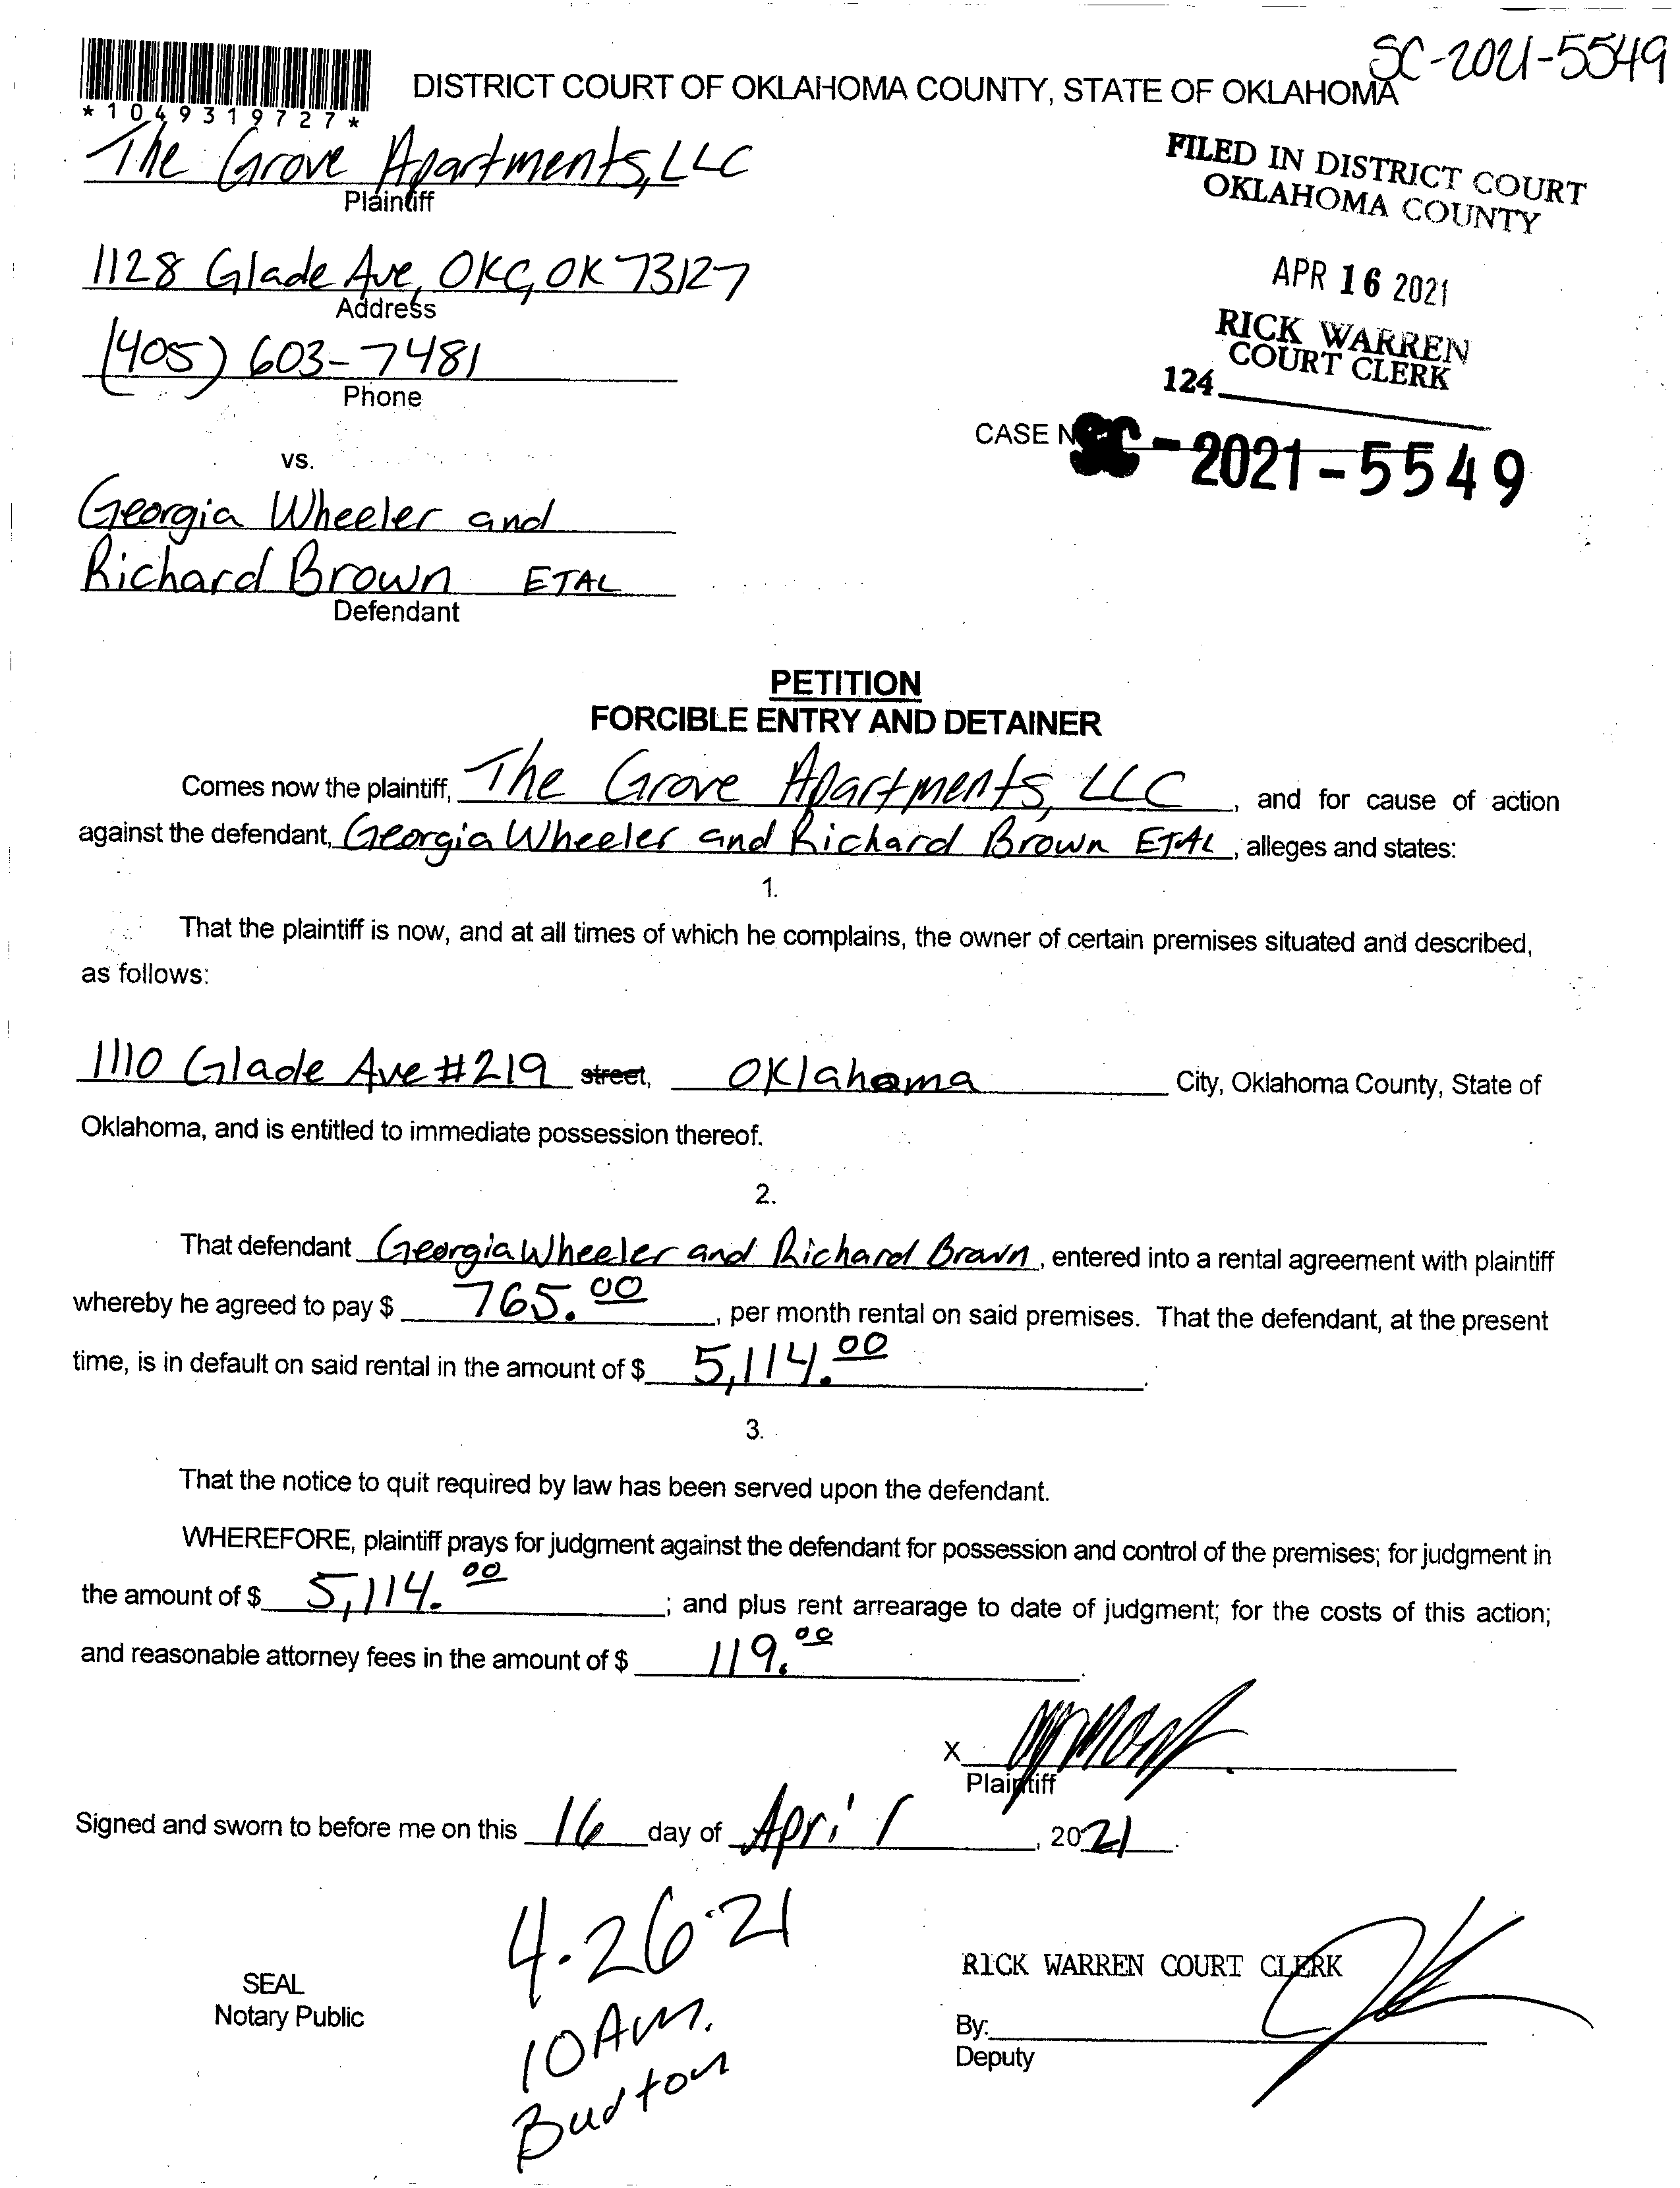 SC-2021-5549
DISTRICT COURT OF OKLAHOMA COUNTY, STATE OF OKLAHOMA
*1049319727*
The Grove Apartments, LLC
Plaintiff
FILED IN DISTRICT COURT
OKLAHOMA COUNTY
1128 Glade Ave, OKC, OK 73127
Address
APR 16 2021
(405) 603-7481
Phone
RICK WARREN
COURT CLERK
124
CASE N
SC-2021-5549
vs.
Georgia Wheeler and
Richard Brown ETAL
Defendant
PETITION
FORCIBLE ENTRY AND DETAINER
Comes now the plaintiff, The Grove Apartments, LLC, and for cause of action
against the defendant, Georgia Wheeler and Richard Brown ETAL, alleges and states:
1.
That the plaintiff is now, and at all times of which he complains, the owner of certain premises situated and described,
as follows:
1110 Glade Ave #219 street, Oklahoma City, Oklahoma County, State of
Oklahoma, and is entitled to immediate possession thereof.
2.
That defendant Georgia Wheeler and Richard Brown, entered into a rental agreement with plaintiff
whereby he agreed to pay $ 765.00, per month rental on said premises. That the defendant, at the present
time, is in default on said rental in the amount of $ 5,114.00.
3.
That the notice to quit required by law has been served upon the defendant.
WHEREFORE, plaintiff prays for judgment against the defendant for possession and control of the premises; for judgment in
the amount of $ 5,114.00; and plus rent arrearage to date of judgment; for the costs of this action;
and reasonable attorney fees in the amount of $ 119.00.
X
Plaintiff
Signed and sworn to before me on this 16 day of April, 2021.
4.26.21
10 AM.
SEAL
Notary Public
RICK WARREN COURT CLERK
By:
Deputy